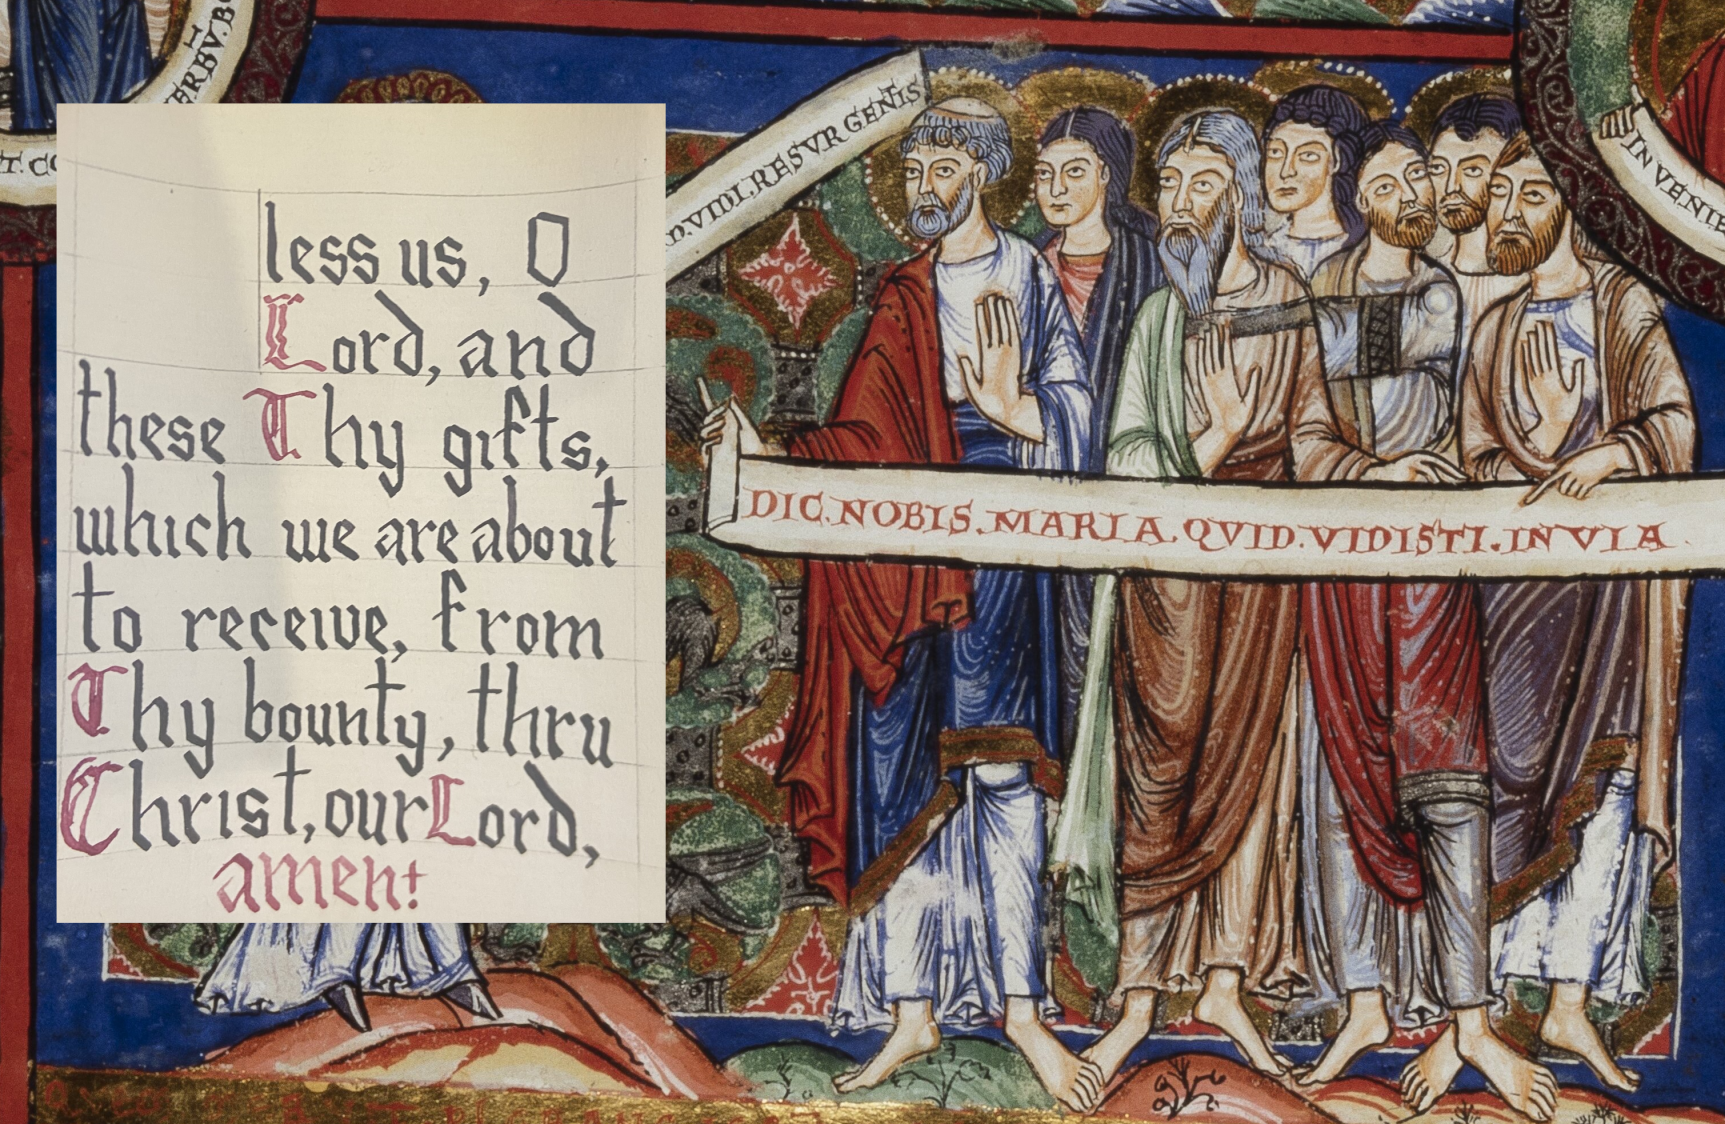 ERBV.BO
T.CO
D.VIDI.RESVRGENTIS
INVENIE
less us, O
Lord, and
these Thy gifts,
which we are about
to receive, from
Thy bounty, thru
Christ, our Lord,
amen!
DIC.NOBIS.MARIA.QVID.VIDISTI.IN VIA.